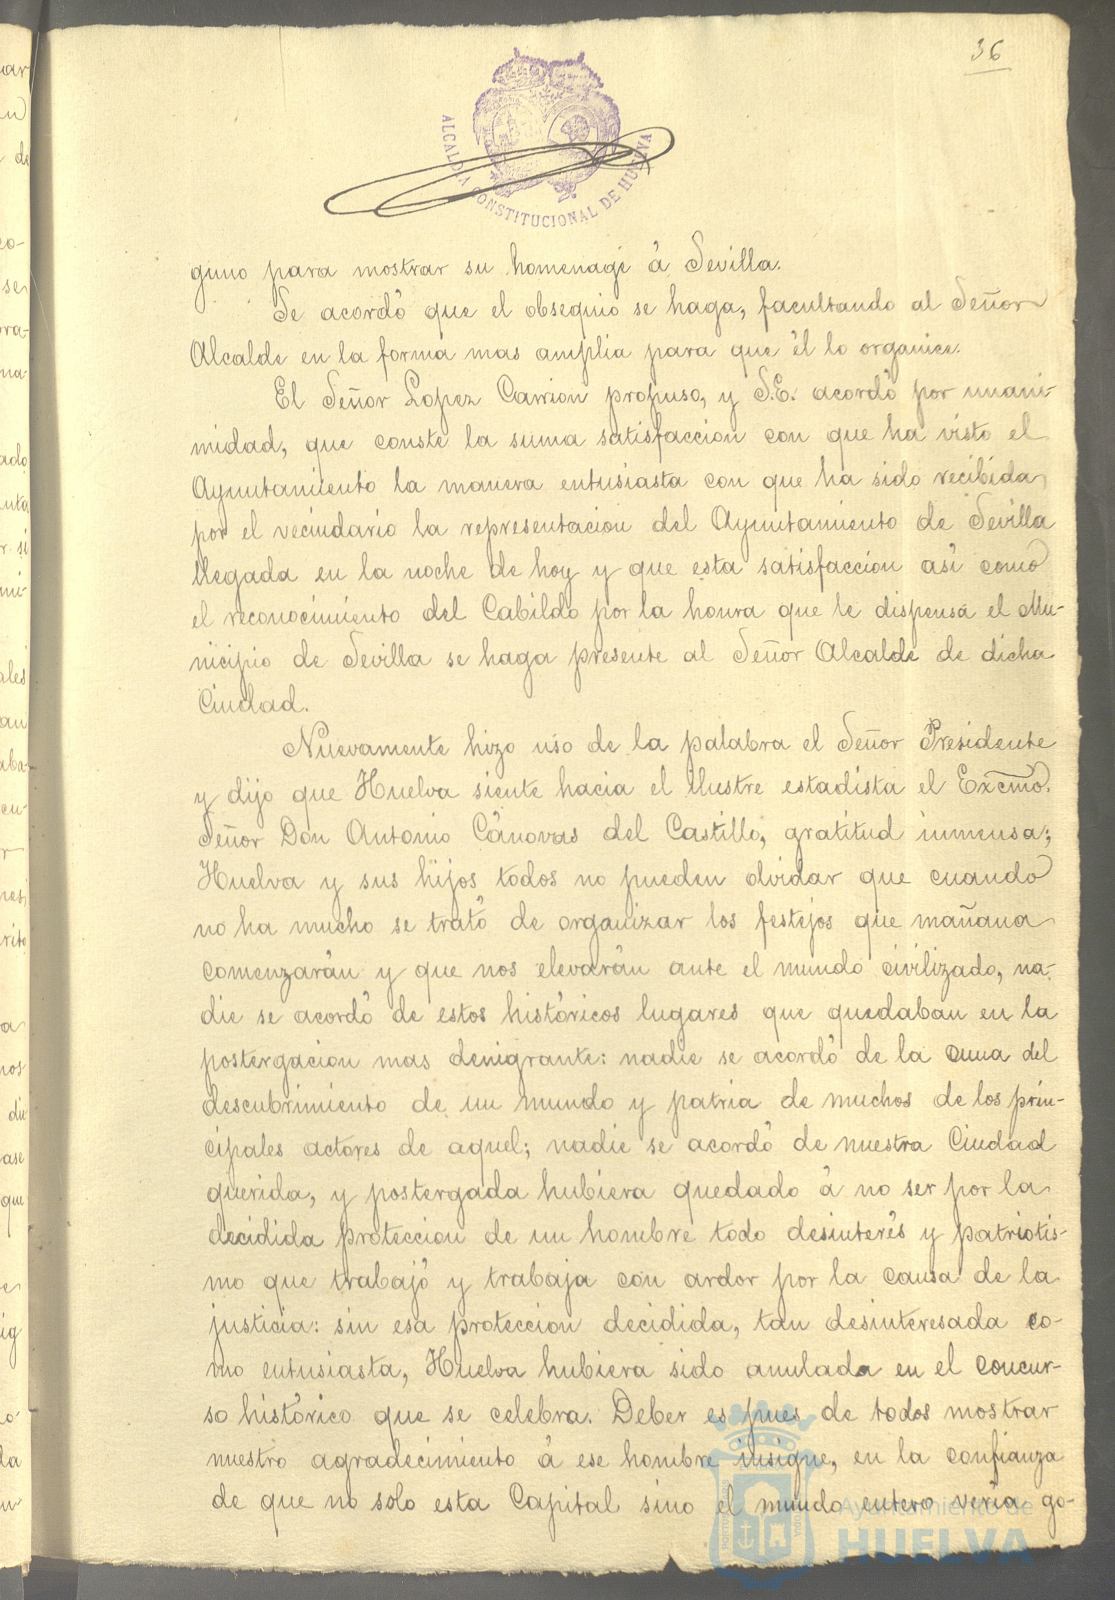 36
ALCALDIA CONSTITUCIONAL DE HUELVA
guno para mostrar su homenage á Sevilla.
Se acordó que el obsequio se haga, facultando al Señor
Alcalde en la forma mas amplia para que él lo organice.
El Señor Lopez Carrion propuso, y S.E. acordó por unani-
midad, que conste la suma satisfaccion con que ha visto el
Ayuntamiento la manera entusiasta con que ha sido recibida
por el vecindario la representacion del Ayuntamiento de Sevilla
llegada en la noche de hoy y que esta satisfaccion asi como
el reconocimiento del Cabildo por la honra que le dispensa el Mu-
nicipio de Sevilla se haga presente al Señor Alcalde de dicha
Ciudad.
Nuevamente hizo uso de la palabra el Señor Presidente
y dijo que Huelva siente hacia el Ilustre estadista el Excmo.
Señor Don Antonio Cánovas del Castillo, gratitud inmensa;
Huelva y sus hijos todos no pueden olvidar que cuando
no ha mucho se trató de organizar los festejos que mañana
comenzarán y que nos elevarán ante el mundo civilizado, na-
die se acordó de estos históricos lugares que quedaban en la
postergacion mas denigrante: nadie se acordó de la cuna del
descubrimiento de un mundo y patria de muchos de los prin-
cipales actores de aquel; nadie se acordó de nuestra Ciudad
querida, y postergada hubiera quedado á no ser por la
decidida proteccion de un hombre todo desinterés y patriotis-
mo que trabajó y trabaja con ardor por la causa de la
justicia: sin esa proteccion decidida, tan desinteresada co-
mo entusiasta, Huelva hubiera sido anulada en el concur-
so histórico que se celebra. Deber es pues de todos mostrar
nuestro agradecimiento á ese hombre insigne, en la confianza
de que no solo esta Capital sino el mundo entero veria go-
Ayuntamiento de
HUELVA